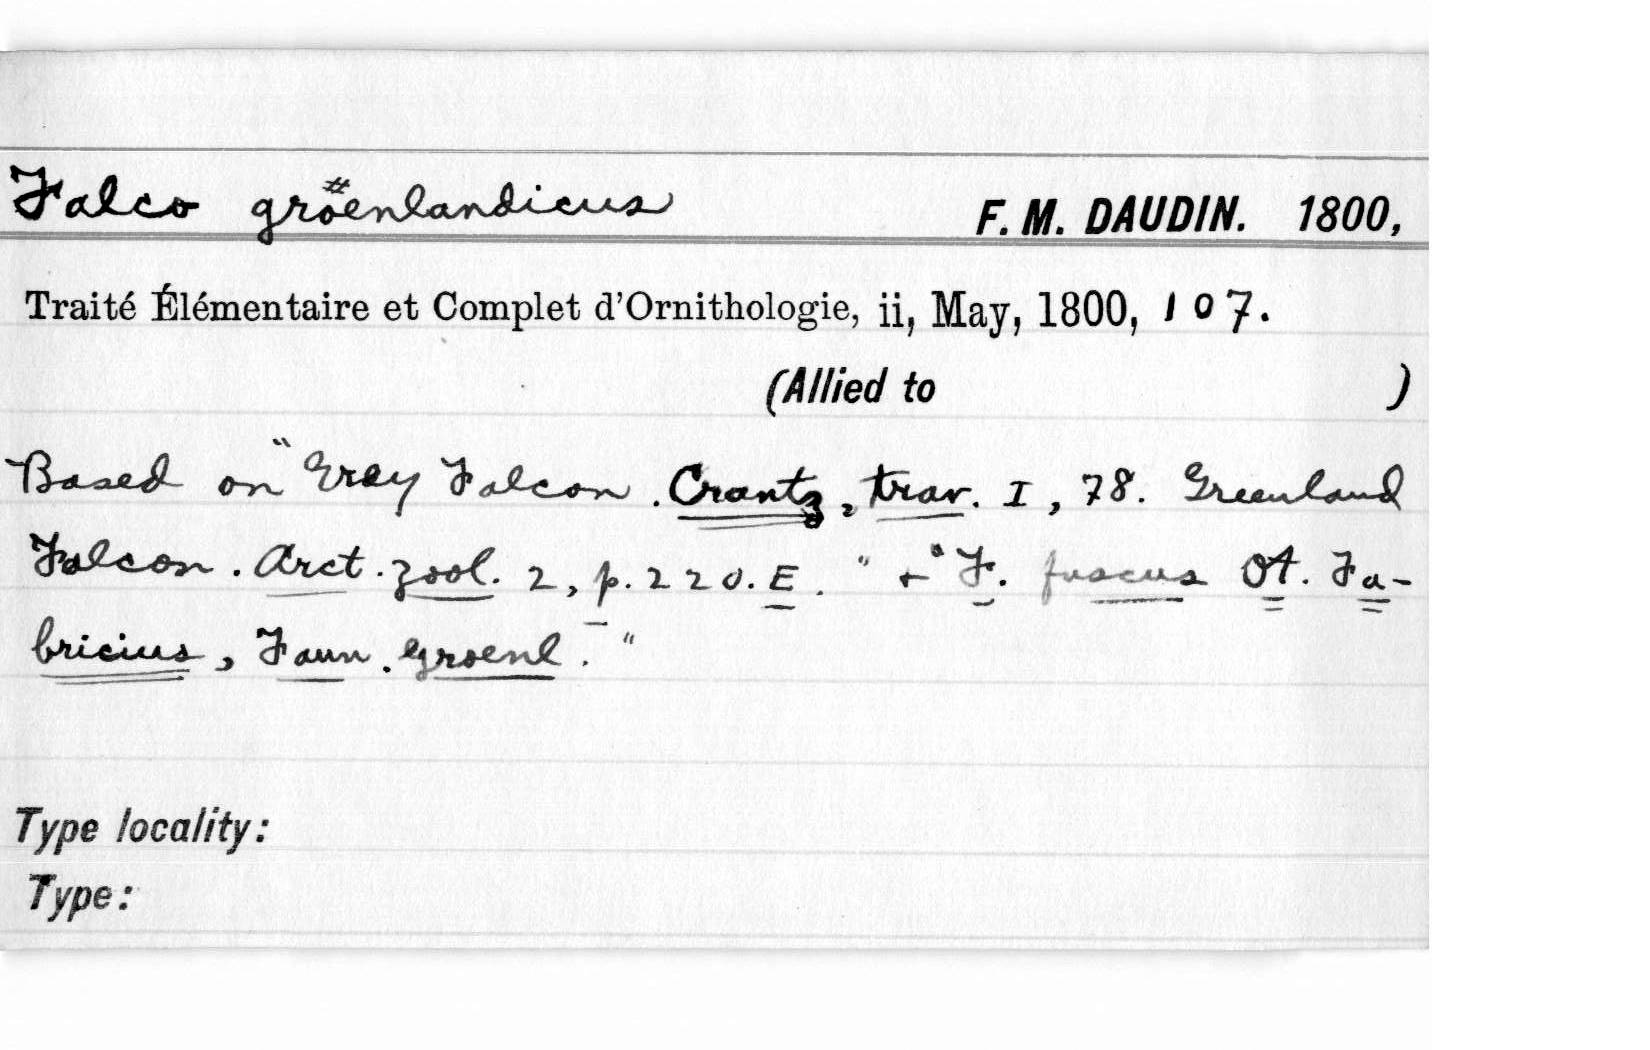 Falco gröenlandicus F. M. DAUDIN. 1800,
Traité Élémentaire et Complet d'Ornithologie, ii, May, 1800, 107.
(Allied to )
Based on "Grey Falcon. Crantz, trav. I, 78. Greenland
Falcon. Arct. zool. 2, p. 220. E." + "F. fuscus Ot. Fa-
bricius, Faun. groenl."
Type locality:
Type: